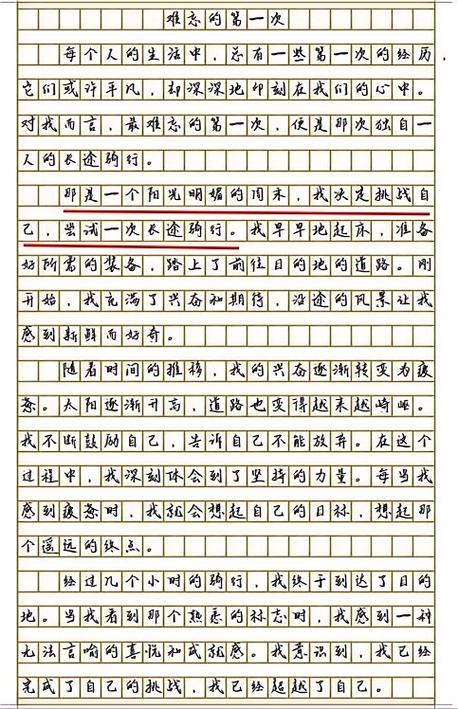 难忘的第一次
每个人的生活中，总有一些第一次的经历，
它们或许平凡，却深深地印刻在我们的心中。
对我而言，最难忘的第一次，便是那次独自一
人的长途骑行。
那是一个阳光明媚的周末，我决定挑战自
己，尝试一次长途骑行。我早早地起床，准备
好所需的装备，踏上了前往目的地的道路。刚
开始，我充满了兴奋和期待，沿途的风景让我
感到新鲜而好奇。
随着时间的推移，我的兴奋逐渐转变为疲
惫。太阳逐渐升高，道路也变得越来越崎岖。
我不断鼓励自己，告诉自己不能放弃。在这个
过程中，我深刻体会到了坚持的力量。每当我
感到疲惫时，我就会想起自己的目标，想起那
个遥远的终点。
经过几个小时的骑行，我终于到达了目的
地。当我看到那个熟悉的标志时，我感到一种
无法言喻的喜悦和成就感。我意识到，我已经
完成了自己的挑战，我已经超越了自己。